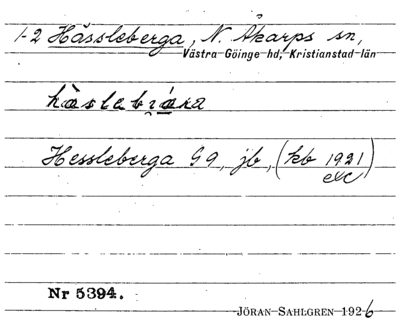 1-2 Hässleberga, N. Åkarps sn,
Västra Göinge hd, Kristianstad län
Hessleberga G9, jb, (kb 1921
exc)
Nr 5394.
JÖRAN SAHLGREN 1926